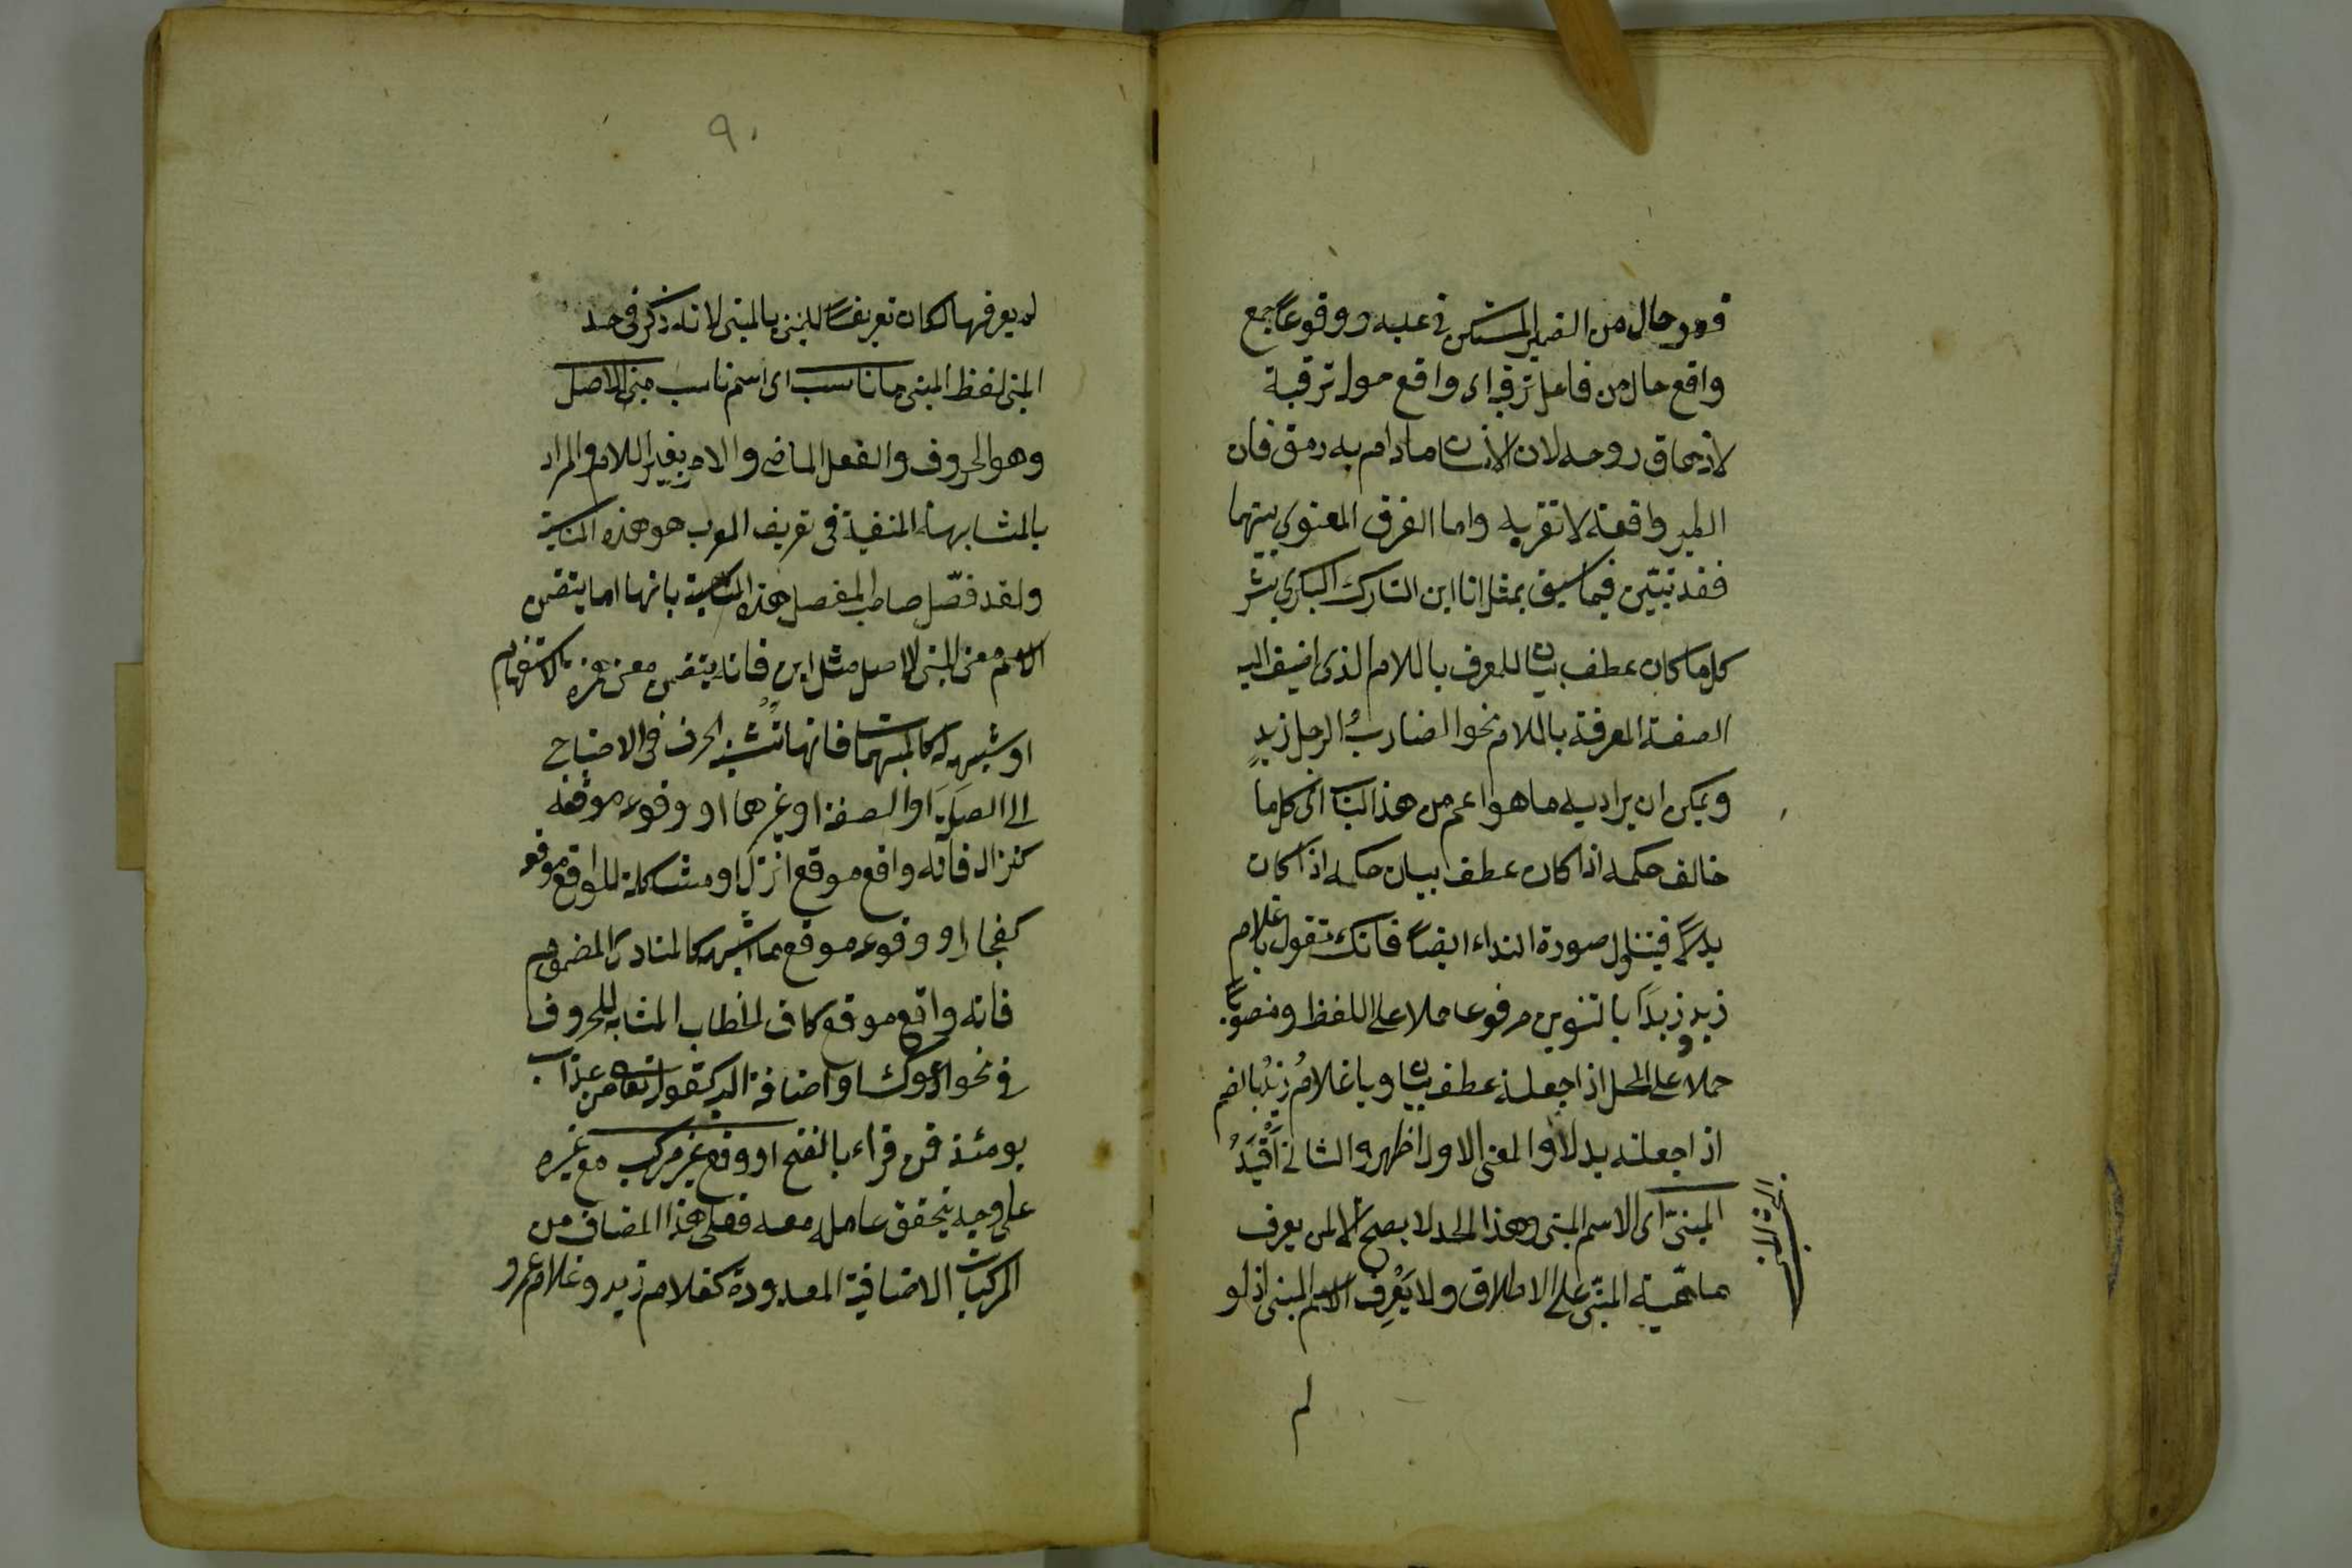 فهو حال من الضمير المستكن في عليه ووقوعا جمع
واقع حال من فاعل ترقبه اى واقع حول ترقبه
لازهاق روحه لان الانسان مادام به رمق فان
الطير واقعة لا تقربه واما الفرق المعنوى بينهما
فقد تبيّن فيما سبق بمثل انا ابن التارك البكرى بشر
كل ما كان عطف بيان للمعرف باللام الذى اضيف اليه
الصفة المعرفة باللام نحو الضاربُ الرجل زيدٍ
ويمكن ان يراد به ما هو اعم من هذا الباب اى كل ما
خالف حكمه اذا كان عطف بيان حكمه اذا كان
بدلاً فيتناول صورة النداء ايضاً فانك تقول يا غلام
زيدٌ وزيداً بالتنوين مرفوعا حملا على اللفظ ومنصوباً
حملا على المحل اذا جعلته عطف بيان ويا غلامُ زيدُ بالضم
اذا جعلته بدلا والمعنى الاول اظهر والثانى اَفْيَدُ
المبنىّ اى الاسم المبنى وهذا الحد لا يصح الا لمن يعرف
ماهيّة المبنّى على الاطلاق ولا يَعْرِف الاسم المبنى اذ لو
لم
٩٠
لم يعرفها لكان تعريفاً للمبنى بالمبنى لانه ذكر فى حد
المبنى لفظ المبنى ما ناسب اى اسم ناسب مبنى الاصل
وهو الحروف والفعل الماضى والامر بغير اللام والمراد
بالمشابهة المنفية فى تعريف المعرب هو هذه المناسبة
ولقد فصّل صاحب المفصل هذه المناسبة بانها اما يتضمن
الاسم معنى المبنى الاصل مثل اين فانه يتضمن معنى همزة الاستفهام
او شبهه له كالمبهمات فانها تُشْبِهُ الحرف فى الاحتياج
الى الصلة او الصفة او غيرهما او وقوعه موقعه
كنزال فانه واقع موقع انزل او مشاكلته للواقع موقعه
كفجار او وقوعه موقع ما اشبهه كالمنادى المضموم
فانه واقع موقع كاف الخطاب المشابه للحروف
فى نحو ادعوك او اضافة اليه كقوله تعالى من عذاب
يومئذ فمن قراء بالفتح او وقع غير مركب مع غيره
على وجه يتحقق عامله معه فعلى هذا المضاف من
المركبات الاضافية المعدودة كغلام زيد وغلام عمرو